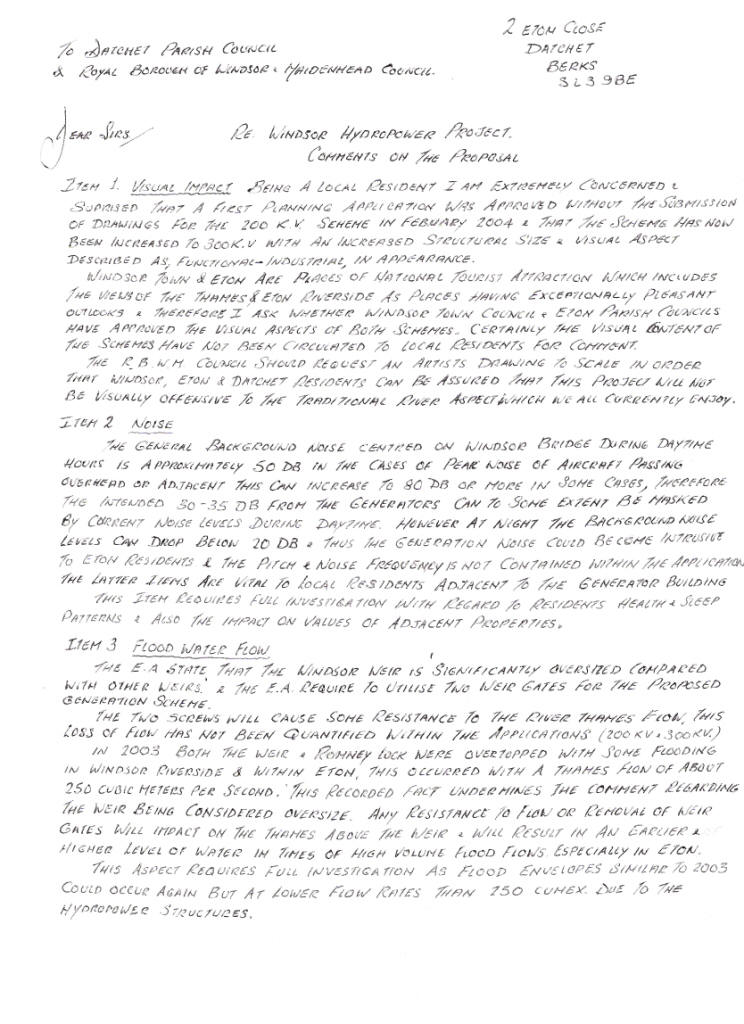 2 ETON CLOSE
DATCHET
BERKS
SL3 9BE
TO DATCHET PARISH COUNCIL
& ROYAL BOROUGH OF WINDSOR & MAIDENHEAD COUNCIL.
DEAR SIRS
RE. WINDSOR HYDROPOWER PROJECT.
COMMENTS ON THE PROPOSAL
ITEM 1. VISUAL IMPACT BEING A LOCAL RESIDENT I AM EXTREMELY CONCERNED &
SUPRISED THAT A FIRST PLANNING APPLICATION WAS APPROVED WITHOUT THE SUBMISSION
OF DRAWINGS FOR THE 200 K.V. SEHEME IN FEBUARY 2004 & THAT THE SCHEME HAS NOW
BEEN INCREASED TO 300K.V WITH AN INCREASED STRUCTURAL SIZE & VISUAL ASPECT
DESCRIBED AS, FUNCTIONAL-INDUSTRIAL, IN APPEARANCE.
WINDSOR TOWN & ETON ARE PLACES OF NATIONAL TOURIST ATTRACTION WHICH INCLUDES
THE VIEWS OF THE THAMES, & ETON RIVERSIDE AS PLACES HAVING EXCEPTIONALLY PLEASANT
OUTLOOKS & THEREFORE I ASK WHETHER WINDSOR TOWN COUNCIL & ETON PARISH COUNCILS
HAVE APPROVED THE VISUAL ASPECTS OF BOTH SCHEMES. CERTAINLY THE VISUAL CONTENT OF
THE SCHEMES HAVE NOT BEEN CIRCULATED TO LOCAL RESIDENTS FOR COMMENT.
THE R.B.W.M. COUNCIL SHOULD REQUEST AN ARTISTS DRAWING TO SCALE IN ORDER
THAT WINDSOR, ETON & DATCHET RESIDENTS CAN BE ASSURED THAT THIS PROJECT WILL NOT
BE VISUALLY OFFENSIVE TO THE TRADITIONAL RIVER ASPECT WHICH WE ALL CURRENTLY ENJOY.
ITEM 2 NOISE
THE GENERAL BACKGROUND NOISE CENTRED ON WINDSOR BRIDGE DURING DAYTIME
HOURS IS APPROXIMATELY 50 DB IN THE CASES OF PEAK NOISE OF AIRCRAFT PASSING
OVERHEAD OR ADJACENT THIS CAN INCREASE TO 80 DB OR MORE IN SOME CASES, THEREFORE
THE INTENDED 30-35 DB FROM THE GENERATORS CAN TO SOME EXTENT BE MASKED
BY CURRENT NOISE LEVELS DURING DAYTIME. HOWEVER AT NIGHT THE BACKGROUND NOISE
LEVELS CAN DROP BELOW 20 DB & THUS THE GENERATION NOISE COULD BECOME INTRUSIVE
TO ETON RESIDENTS & THE PITCH & NOISE FREQUENCY IS NOT CONTAINED WITHIN THE APPLICATION
THE LATTER ITEMS ARE VITAL TO LOCAL RESIDENTS ADJACENT TO THE GENERATOR BUILDING
THIS ITEM REQUIRES FULL INVESTIGATION WITH REGARD TO RESIDENTS HEALTH & SLEEP
PATTERNS & ALSO THE IMPACT ON VALUES OF ADJACENT PROPERTIES.
ITEM 3 FLOOD WATER FLOW
THE E.A STATE, THAT THE WINDSOR WEIR 'IS SIGNIFICANTLY OVERSIZED COMPARED
WITH OTHER WEIRS.' & THE E.A. REQUIRE TO UTILISE TWO WEIR GATES FOR THE PROPOSED
GENERATION SCHEME.
THE TWO SCREWS WILL CAUSE SOME RESISTANCE TO THE RIVER THAMES FLOW, THIS
LOSS OF FLOW HAS NOT BEEN QUANTIFIED WITHIN THE APPLICATIONS (200KV & 300KV.)
IN 2003 BOTH THE WEIR & ROMNEY LOCK WERE OVERTOPPED WITH SOME FLOODING
IN WINDSOR RIVERSIDE & WITHIN ETON, THIS OCCURRED WITH A THAMES FLOW OF ABOUT
250 CUBIC METERS PER SECOND. THIS RECORDED FACT UNDERMINES THE COMMENT REGARDING
THE WEIR BEING CONSIDERED OVERSIZE. ANY RESISTANCE TO FLOW OR REMOVAL OF WEIR
GATES WILL IMPACT ON THE THAMES ABOVE THE WEIR & WILL RESULT IN AN EARLIER &
HIGHER LEVEL OF WATER IN TIMES OF HIGH VOLUME FLOOD FLOWS. ESPECIALLY IN ETON.
THIS ASPECT REQUIRES FULL INVESTIGATION AS FLOOD ENVELOPES SIMILAR TO 2003
COULD OCCUR AGAIN BUT AT LOWER FLOW RATES THAN 250 CUMEX. DUE TO THE
HYDROPOWER STRUCTURES.